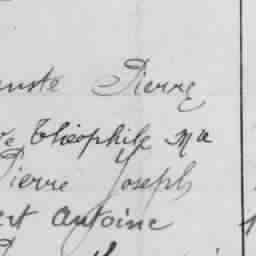 Pierre
Théophile Ma
Pierre Joseph
Antoine